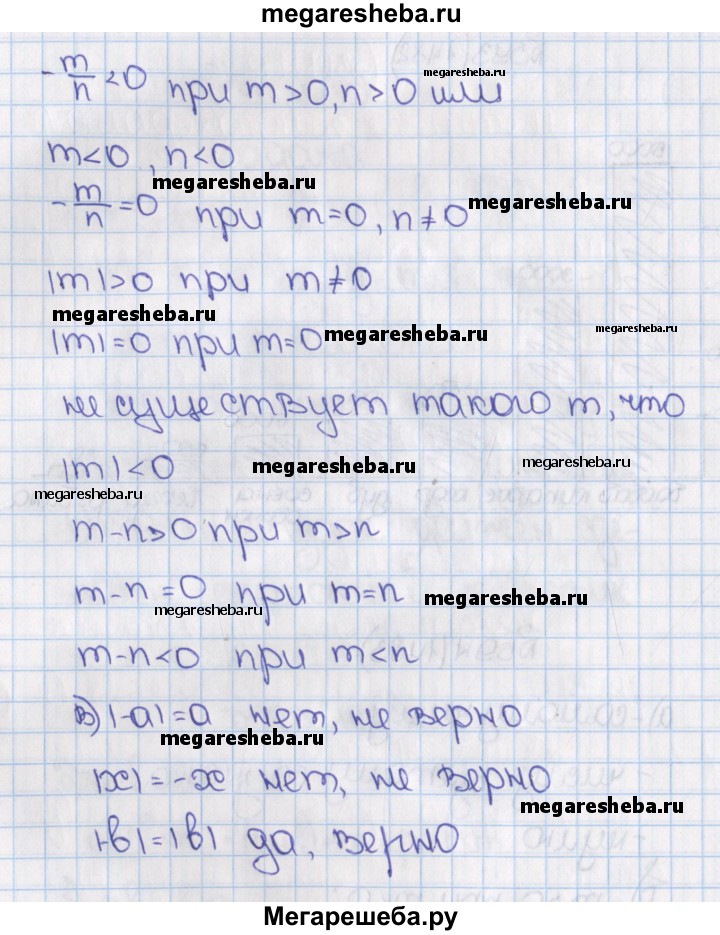 megaresheba.ru
-m/n < 0 при m > 0, n > 0 или
megaresheba.ru
m < 0, n < 0
megaresheba.ru
-m/n = 0 при m = 0, n ≠ 0
megaresheba.ru
|m| > 0 при m ≠ 0
megaresheba.ru
|m| = 0 при m = 0
megaresheba.ru
megaresheba.ru
не существует такого m, что
|m| < 0
megaresheba.ru
megaresheba.ru
megaresheba.ru
m - n > 0 при m > n
m - n = 0 при m = n
megaresheba.ru
megaresheba.ru
m - n < 0 при m < n
в) |-a| = a нет, не верно
megaresheba.ru
|x| = -x нет, не верно
megaresheba.ru
|-b| = |b| да, верно
Мегарешеба.ру